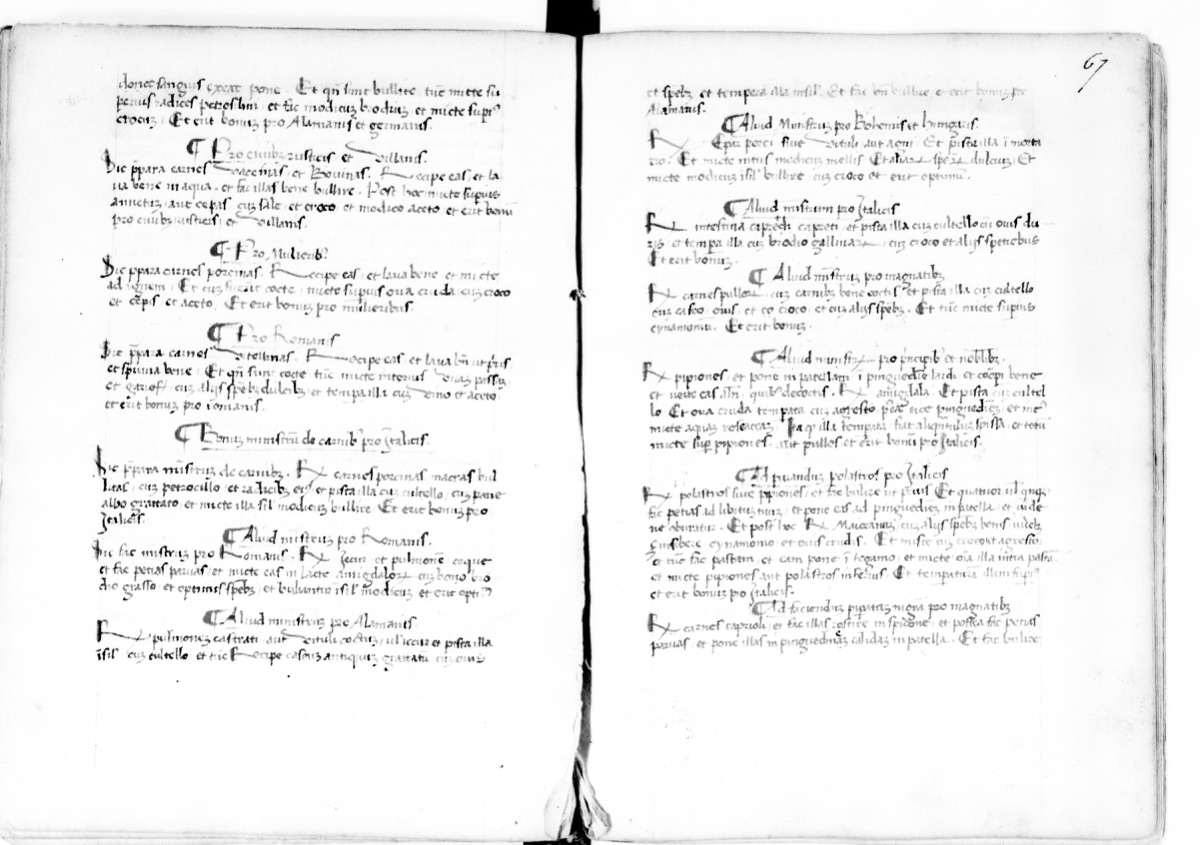 donec sanguis exeat pone. Et qn̄ sint bullite tūc micte su
perius radices petrosilini et fac modicuȝ broduiȝ et micte supra
crocuȝ. Et erit bonuȝ pro Alamanis et germanis.
¶ Pro civibȝ rusticis et Villanis.
Sic p̄para carnes Vaccinas et Bovinas. Recipe eas et la
va bene in aqua. et fac illas bene bullire. Post hoc micte supius
anuctuȝ aut cepas cuȝ sale et croco et modico aceto et erit bonū
pro civibȝ rusticis et Villanis.
¶ Pro Mulieribȝ
Sic p̄para carnes porcinas. Recipe eas et lava bene et micte
ad ignem. Et cuȝ fuerīt cocte micte supius ova cruda cuȝ croco
et cepis et aceto. Et erit bonuȝ pro mulieribus.
¶ Pro Romanis
Sic p̄para carnes Vitellinas. Recipe eas et lava bn̄ ut prīs
et spuma bene. Et qn̄ sunt cocte tūc micte interius Vvas passas
et gariof. cuȝ alijs spēbȝ dulcibȝ et tempa illa cuȝ Vino et aceto.
et erit bonuȝ pro romanis.
¶ Bonuȝ ministrū de carnibȝ pro Italicis.
Sic p̄para mīstruȝ de carnibȝ. Rx carnes porcinas macras bul
litas cuȝ petrocillo et radicibȝ eiȝ et pista illa cuȝ cultello cuȝ pane
albo grattato et micte illa sīl modicuȝ bullire Et erit bonuȝ pro
Italicis.
¶ Aliud mīstruȝ pro Romanis.
Sic fac mistruȝ pro Romanis. Rx Jecur et pulmonē coque
et fac petias parvas et micte eas in lacte amigdaloꝝ cuȝ bono bro
dio grasso et optimis spēbȝ et buliantur isīl modicuȝ et erit opti3
¶ Aliud ministruȝ pro Alamanis
Rx pulmonez castrati aut Vituli coctuȝ ul iecur et pista illa
isīl cuȝ cultello et tūc Recipe caseuȝ antiquuȝ grattatū cuȝ ovis
67
et spēbȝ et tempera illa insīl. Et fac bn̄ bullire et erit bonuȝ pro
Alamanis.
¶ Aliud Ministruȝ pro Bohemis et hungaris.
Rx Epar porci sive Vituli aut agni. Et pista illa ī morta
rio. Et micte intus modicuȝ mellis Et aliaꝝ speꝝ dulciuȝ. Et
micte modicuȝ isīl bullire cuȝ croco et erit optimū.
¶ Aliud mistrum pro Italicis
Rx intestina capreti et pista illa cuȝ cultello cū ovis du
ris et tempa illa cuȝ brodio gallinaꝝ cuȝ croco et alijs spetiebus
Et erit bonuȝ.
¶ Aliud mīstruȝ pro magnatibȝ
Rx carnes pulloꝝ cuȝ carnibȝ bene coctis et pista illa cuȝ cultello
cuȝ caseo ovis et co croco et cuȝ alijs spēbȝ. Et tūc micte supius
cynamomū. Et erit bonuȝ.
¶ Aliud ministrȝ pro p̄ncipibȝ et nobilibȝ.
Rx pipiones et pone in patellam ī pinguedīe lardi et coepi bene
et verte eas decoctis. Rx amigdala. Et pista cuȝ cultel
lo Et ova cruda tempata cuȝ agresto pinguedieȝ et
micte aquaȝ roseaceaȝ. Ita qȝ illa tempata fiat aliqntuluȝ spissa et totū
micte sup̄ pipiones aut pullos et erit bonū pro Italicis.
¶ Ad parandum polastros pro Italicis
Rx polastros sive pipiones et fac bulire ut prius Et quatuor vl qnqȝ
fac petias ad libituȝ tuuȝ et pone eas ad pinguedieȝ in patella et vide
ne oburatur. Et post hoc Rx cuȝ alijs spēbȝ bonis videlȝ
çinsibere cynamomo et ovis crudis. Et misce cuȝ croco et agresto
et tūc fac pastam et eam pone ī tegamo et micte ova illa intra pastā
et micte pipiones aut polastros inferius. Et tempaturā illam supius
et erit bonuȝ pro Italicis.
¶ Ad faciendum pipataȝ nigra pro magnatibȝ
Rx carnes caprioli et fac illas rostire in et postea fac petias
parvas et pone illas in pinguedineȝ calidaȝ in patella. Et fac bulire